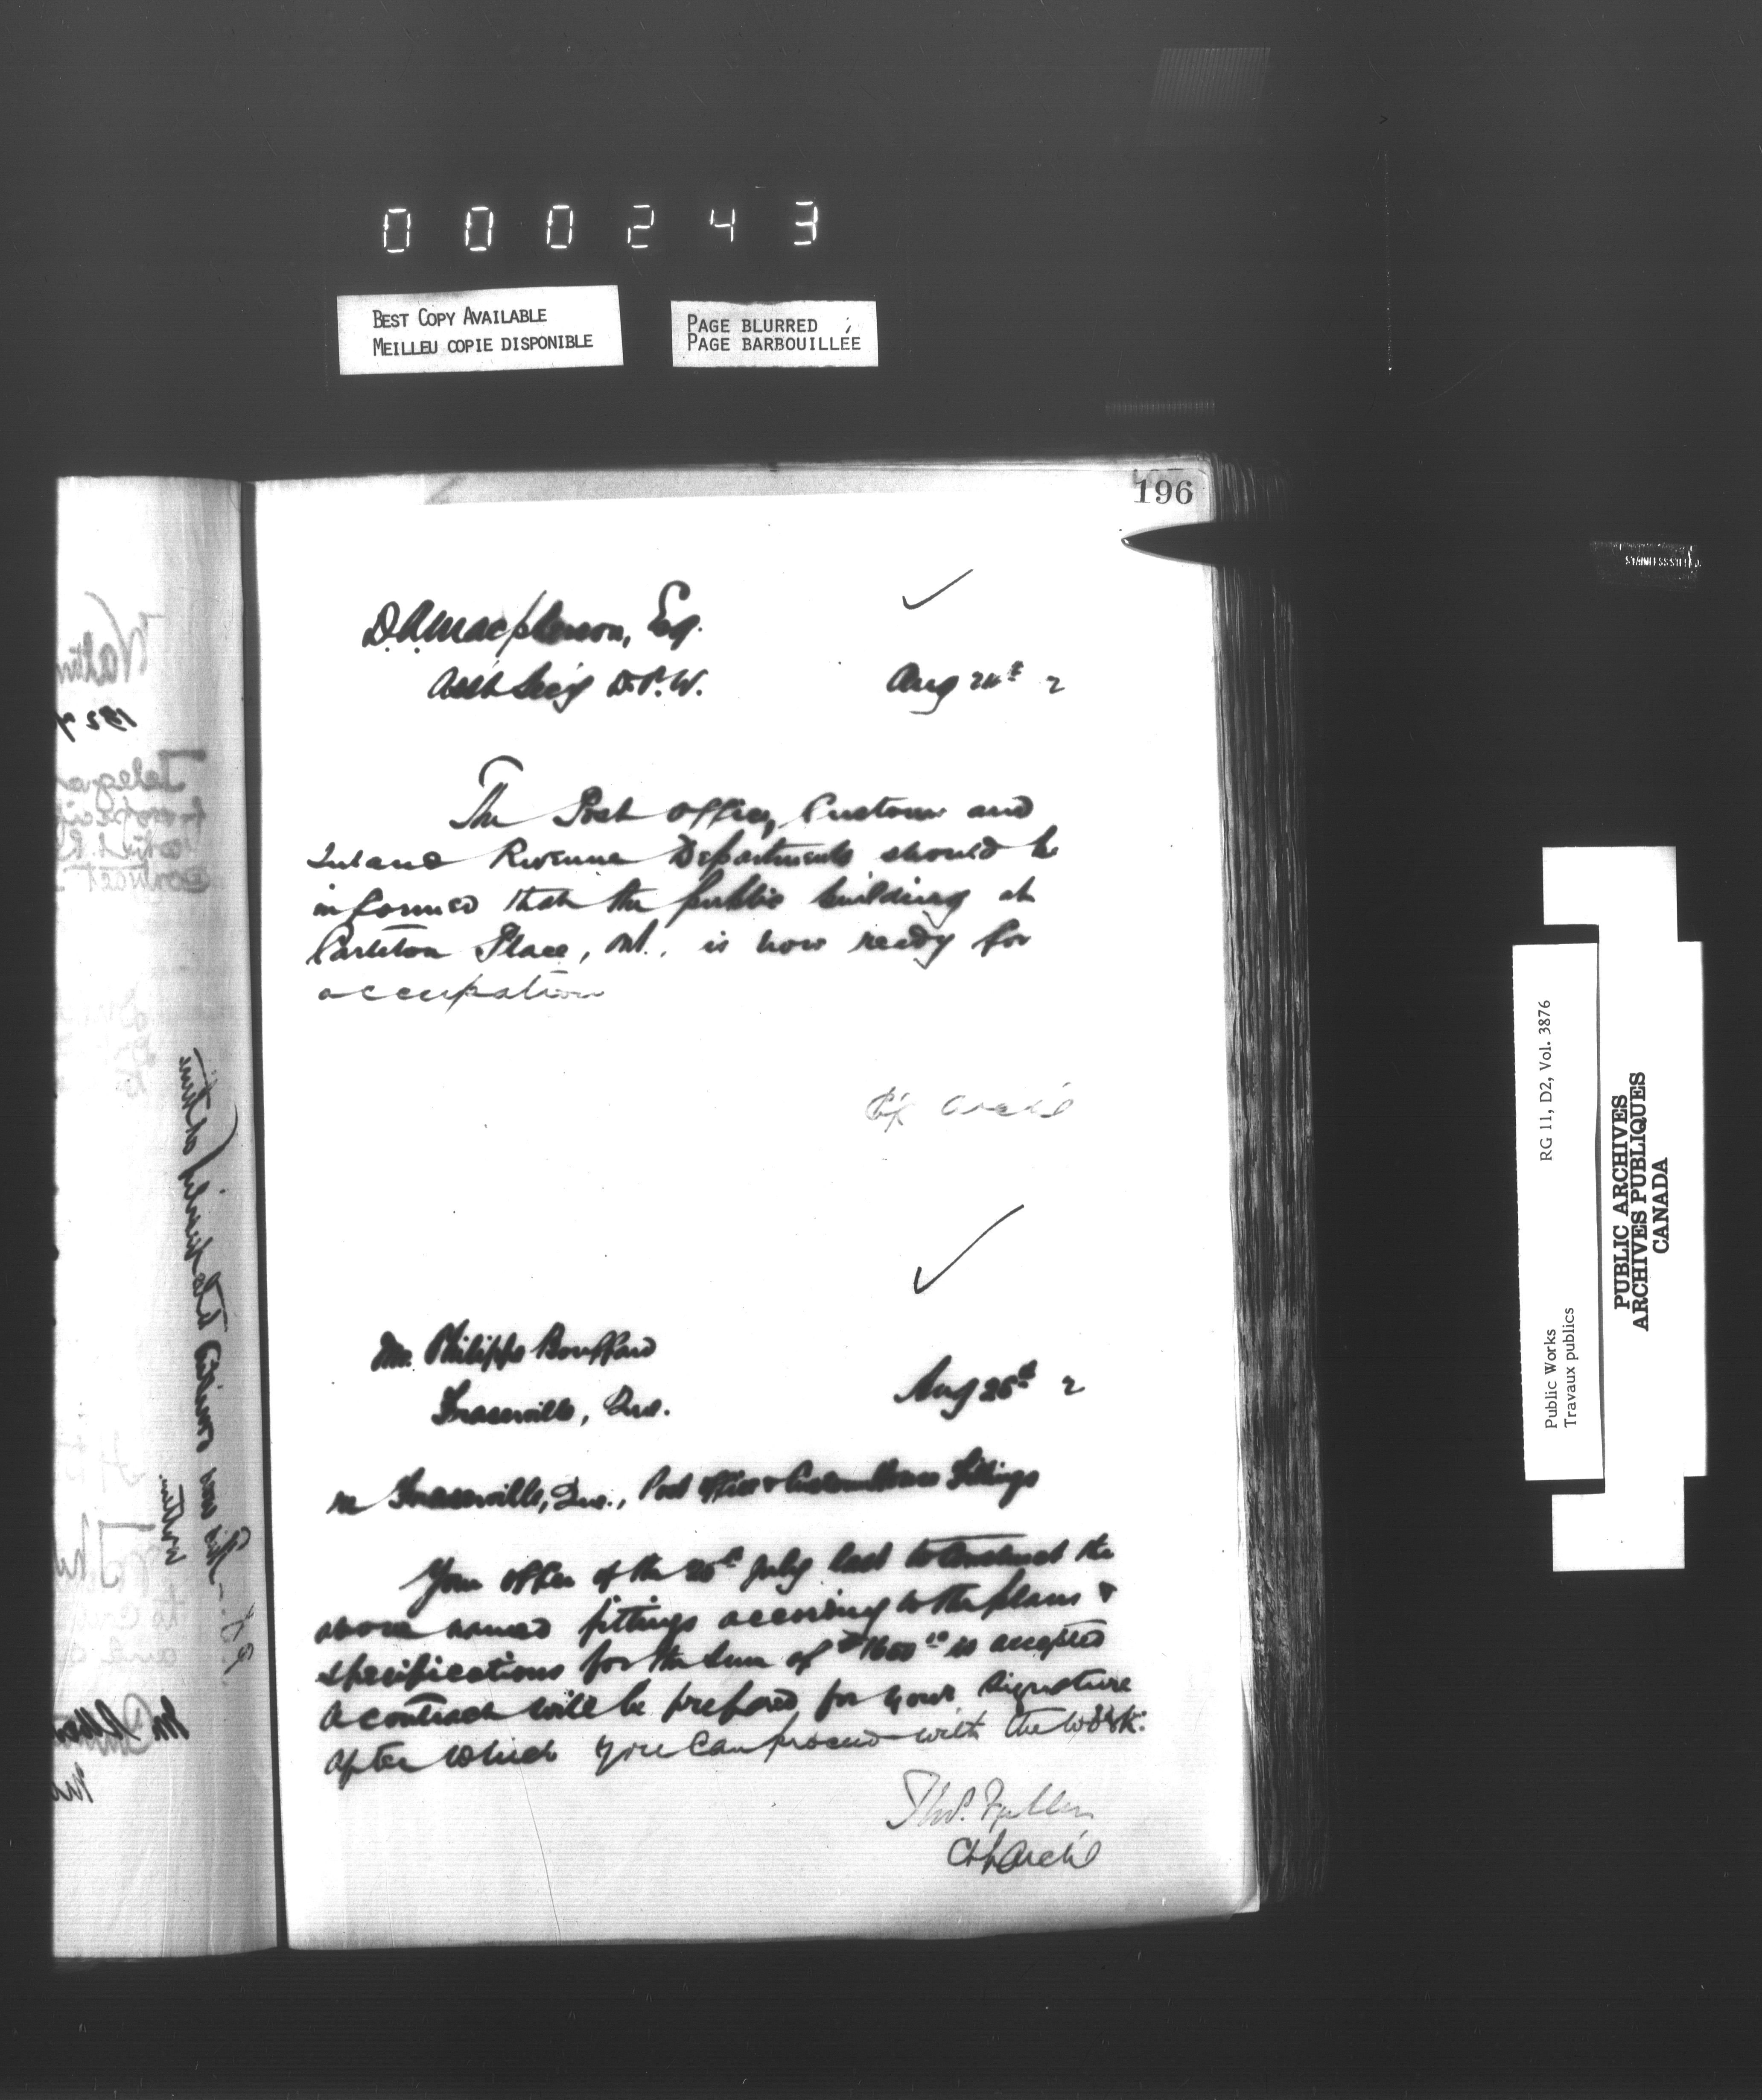 000243
BEST COPY AVAILABLE
MEILLEU COPIE DISPONIBLE
PAGE BLURRED ;
PAGE BARBOUILLEE
196
D.A. Macpherson, Esq.
Asst Sec'y D.P.W.
Aug 2 th 2
The Post Office, Customs and
Inland Revenue Departments should be
informed that the public building at
Carleton Place, Ont., is now ready for
occupation
Ch Archt
Mr. Philippe Bouffard
Fraserville, Que.
Aug 25th 2
re Fraserville, Que., Post Office & Custom House Fittings
Your offer of the 25th July last to construct the
above named fittings according to the plans &
specifications for the sum of $1600 00 is accepted
A contract will be prepared for your signature
after which you can proceed with the work.
Thos. Fuller
Ch Archt
This was omitted to be
written
STAINLESS STEEL
Public Works
Travaux publics
RG 11, D2, Vol. 3876
PUBLIC ARCHIVES
ARCHIVES PUBLIQUES
CANADA